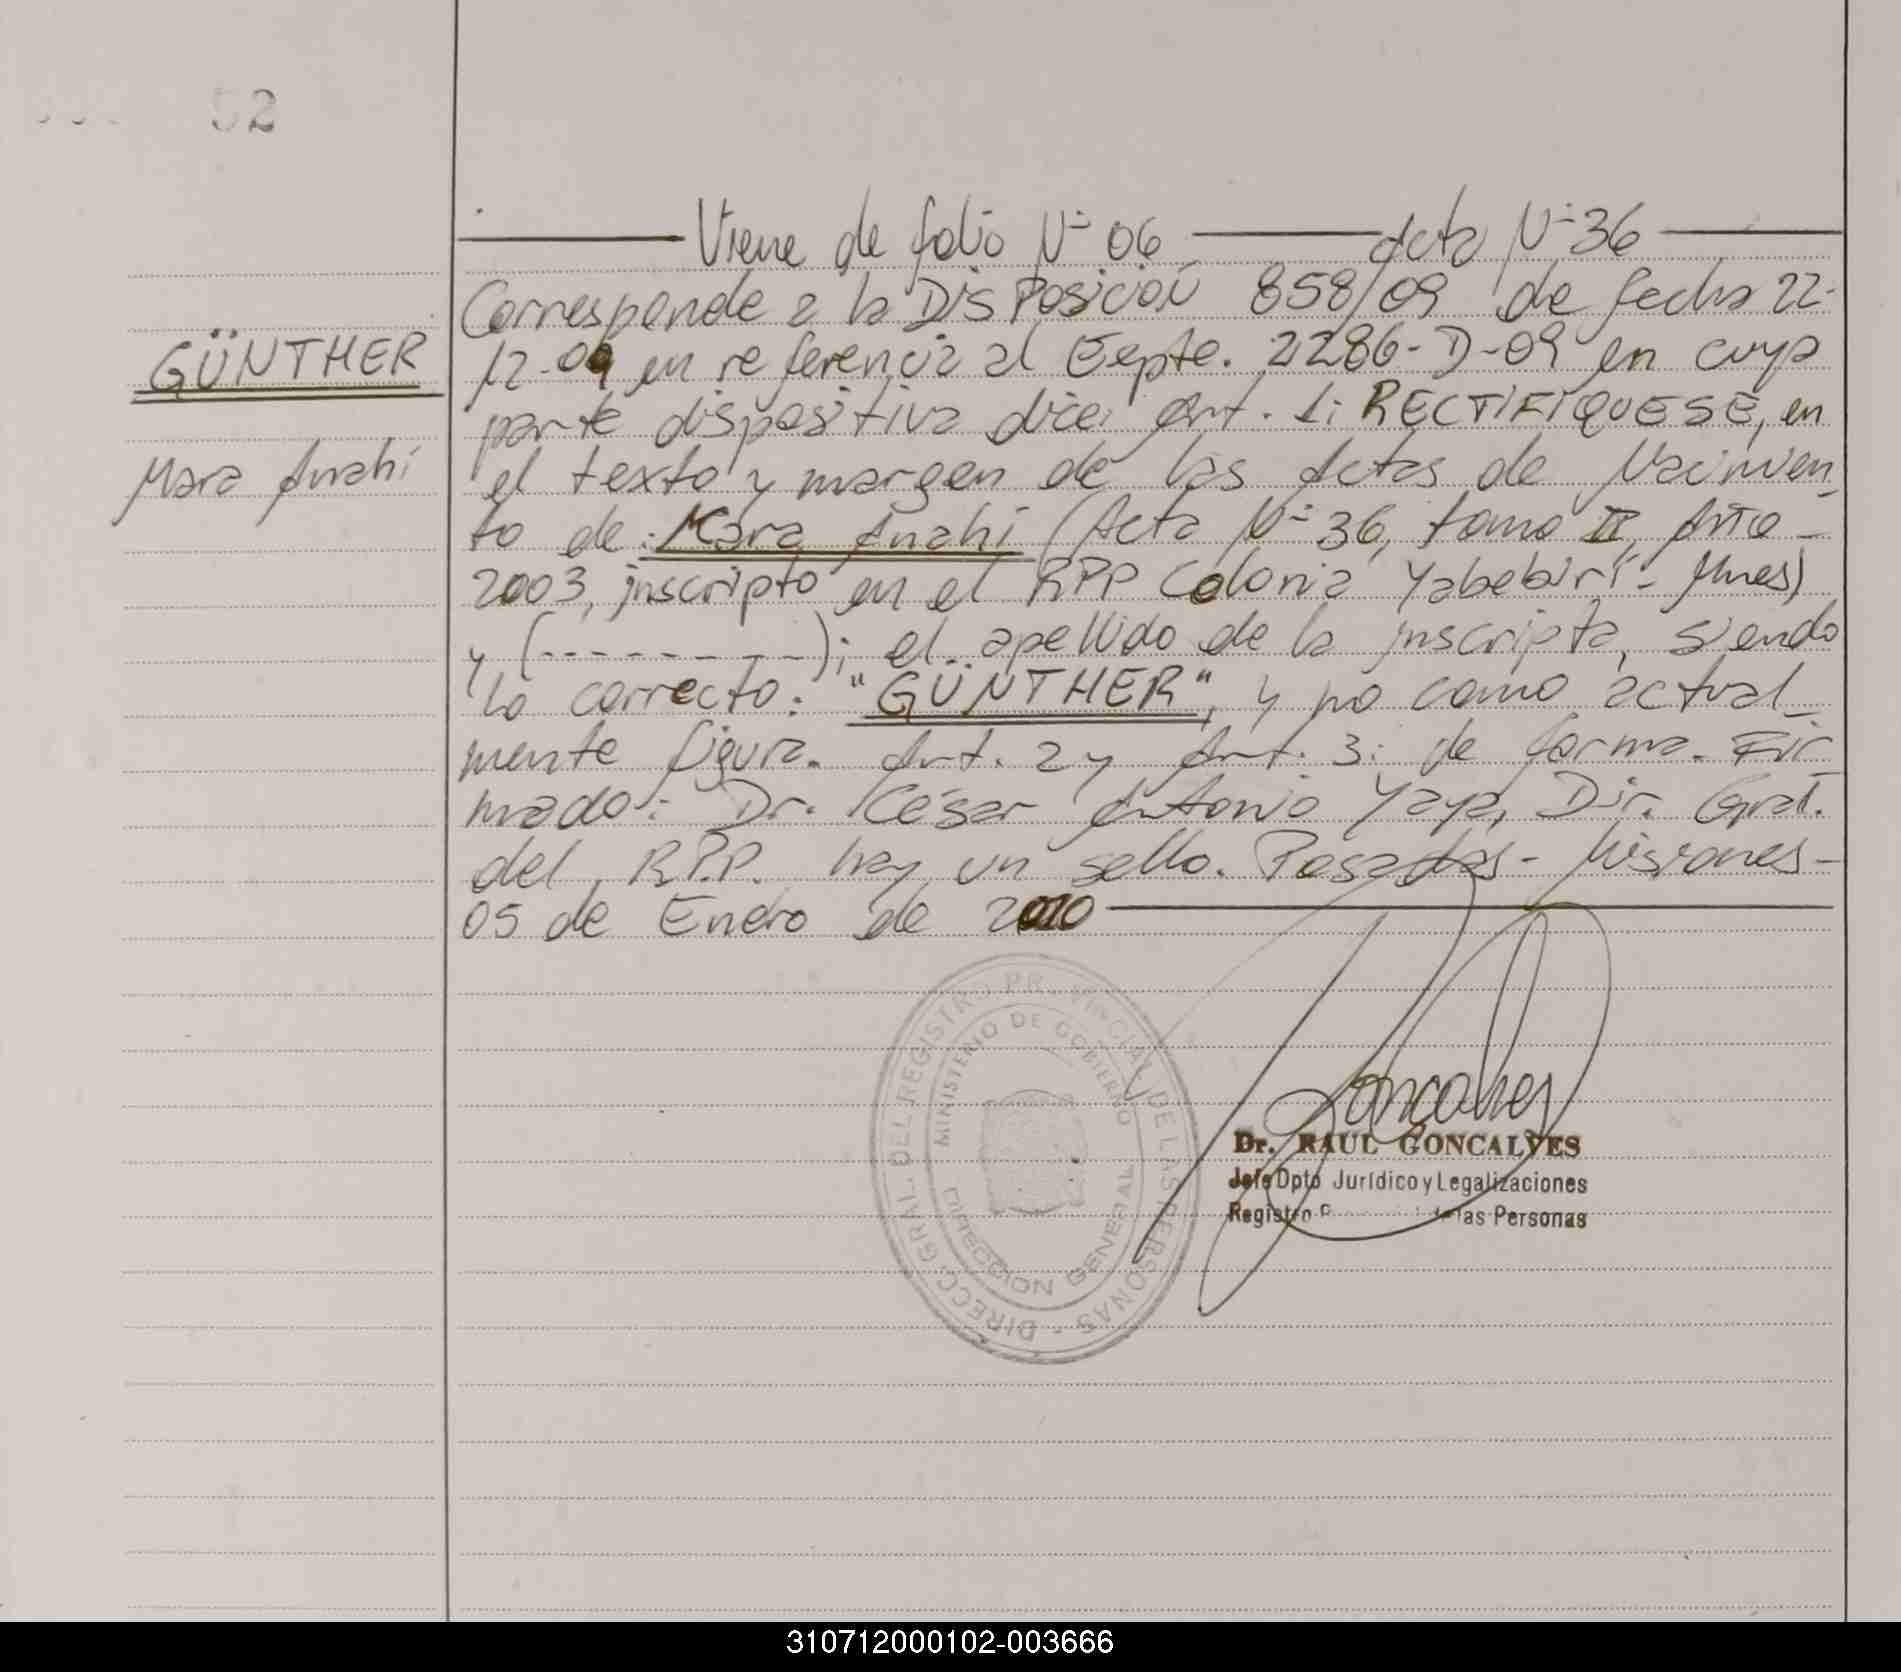 52
Viene de folio Nº 06 Acta Nº 36
GÜNTHER
Mara Anahí
Corresponde a la DisPosición 858/09 de fecha 22-
12-09 en referencia al Expte. 2286-D-09 en cuya
parte dispositiva dice: Art. 1: RECTIFIQUESE, en
el texto y margen de las Actas de Nacimien_
to de: Mara Anahí (Acta Nº 36, tomo II, Año -
2003, inscripto en el RPP Colonia Yabebirí - Mnes)
y (- - - - - - - - -); el apellido de la inscripta, siendo
lo correcto: "GÜNTHER", y no como actual_
mente figura. Art. 2 y Art. 3: de forma. Fir_
mado: Dr. César Antonio Yaya, Dir. Gral.
del R.P.P. hay un sello. Posadas - Misiones -
05 de Enero de 2010
DIRECC. GRAL. DEL REGISTRO PROVINCIAL DE LAS PERSONAS -
MINISTERIO DE GOBIERNO
DIRECCION GENERAL
Goncalves
Dr. RAUL GONCALVES
Jefe Dpto Jurídico y Legalizaciones
Registro de las Personas
310712000102-003666